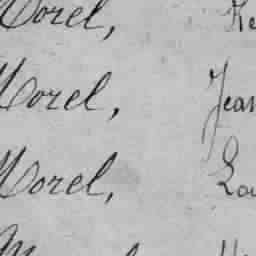 Morel,
Morel, Jean
Morel, Lou